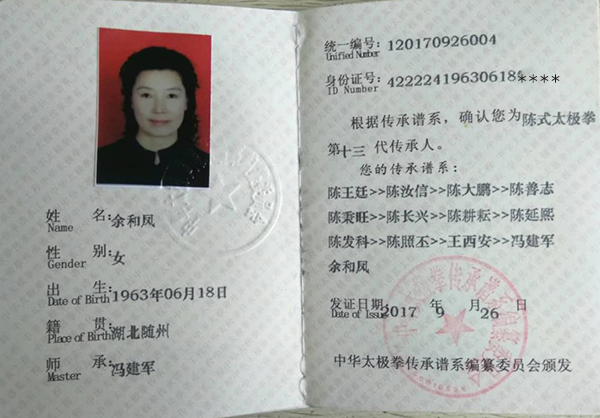 姓 名:余和凤
Name
性 别:女
Gender
出 生:
Date of Birth 1963年06月18日
籍 贯:
Place of Birth 湖北随州
师 承:冯建军
Master
统一编号:120170926004
Unified Number
身份证号:42222419630618****
ID Number
根据传承谱系，确认您为陈式太极拳
第十三 代传承人。
您的传承谱系：
陈王廷>>陈汝信>>陈大鹏>>陈善志
陈秉旺>>陈长兴>>陈耕耘>>陈延熙
陈发科>>陈照丕>>王西安>>冯建军
余和凤
发证日期:2017 年 9 月 26 日
Date of Issue
中华太极拳传承谱系编纂委员会颁发